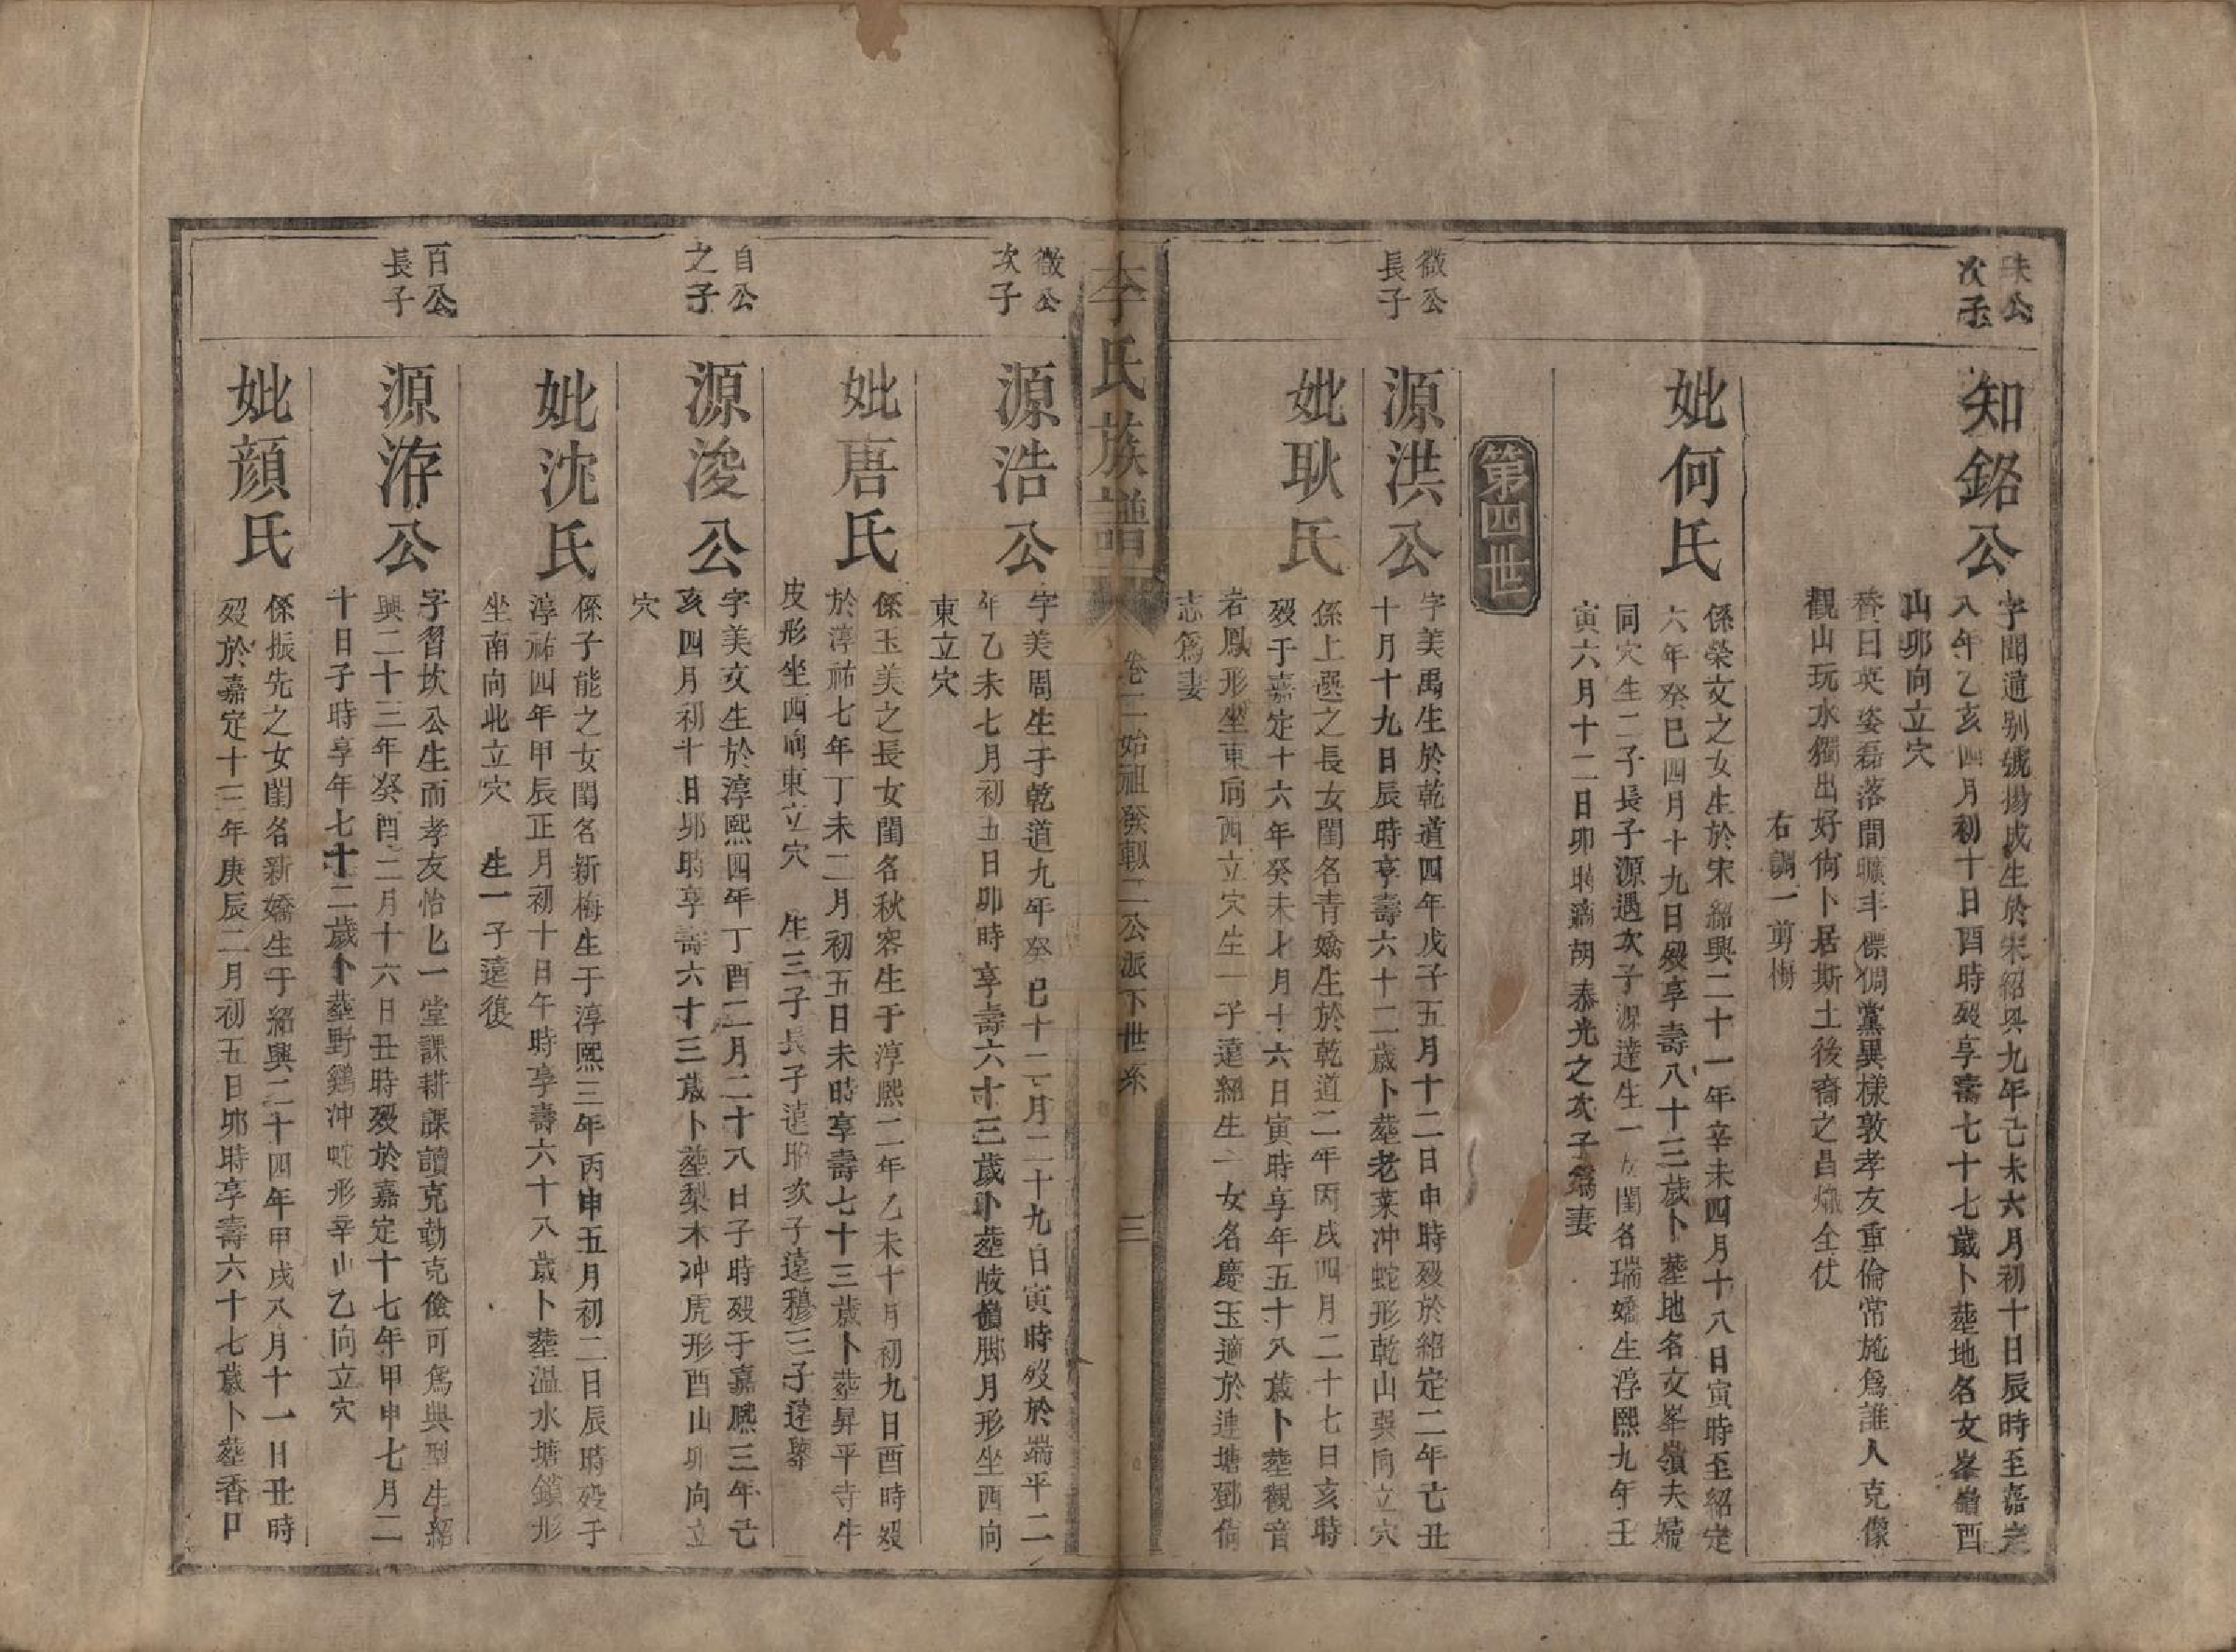 朱公
次子
知銘公
字聞道別號揚成生於宋紹興九年己未六月初十日辰時至嘉定
八年乙亥四月初十日酉時歿享壽七十七歲卜塟地名文峯嶺酉
山卯向立穴
替曰英姿磊落間曠丰標倜黨異樣敦孝友重倫常施爲誰人克像
觀山玩水獨出好倘卜居斯土後裔之昌熾全仗
右調一剪梅
妣何氏
係榮文之女生於宋紹興二十一年辛未四月十八日寅時至紹定
六年癸巳四月十九日歿享壽八十三歲卜塟地名文峯嶺夫墳
同穴生二子長子源遇次子源達生一女閨名瑞嬌生淳熙九年壬
寅六月十二日卯時適胡泰光之次子爲妻
第四世
徵公
長子
源洪公
字美禹生於乾道四年戊子五月十二日申時歿於紹定二年己丑
十月十九日辰時享壽六十二歲卜塟老菜冲蛇形乾山巽向立穴
妣耿氏
係上選之長女閨名青嬌生於乾道二年丙戌四月二十七日亥時
歿于嘉定十六年癸未七月十六日寅時享年五十八歲卜塟觀音
岩鳳形坐東向西立穴生一子遠紹生一女名慶玉適於連塘鄧倘
志爲妻
李氏族譜
卷二始祖發軔二公派下世系
三
徵公
次子
源浩公
字美周生于乾道九年癸巳十二月二十九日寅時歿於端平二
年乙未七月初五日卯時享壽六十三歲卜塟崚嶺脚月形坐西向
東立穴
妣唐氏
係玉美之長女閨名秋容生于淳熙二年乙未十月初九日酉時歿
於淳祐七年丁未二月初五日未時享壽七十三歲卜塟昇平寺牛
皮形坐西向東立穴 生三子長子遠昭次子遠穆三子遠擧
自公
之子
源浚公
字美文生於淳熙四年丁酉二月二十八日子時歿于嘉熙三年己
亥四月初十日卯時享壽六十三歲卜塟梨木冲虎形酉山卯向立
穴
妣沈氏
係子能之女閨名新梅生于淳熙三年丙申五月初二日辰時歿于
淳祐四年甲辰正月初十日午時享壽六十八歲卜塟温水塘鎖形
坐南向北立穴 生一子遠復
百公
長子
源洊公
字習坎公生而孝友怡怡一堂課耕課讀克勤克儉可爲典型生紹
興二十三年癸酉二月十六日丑時歿於嘉定十七年甲申七月二
十日子時享年七十二歲卜塟野鷄冲蛇形辛山乙向立穴
妣顔氏
係振先之女閨名新嬌生于紹興二十四年甲戌八月十一日丑時
歿於嘉定十三年庚辰二月初五日卯時享壽六十七歲卜塟香口